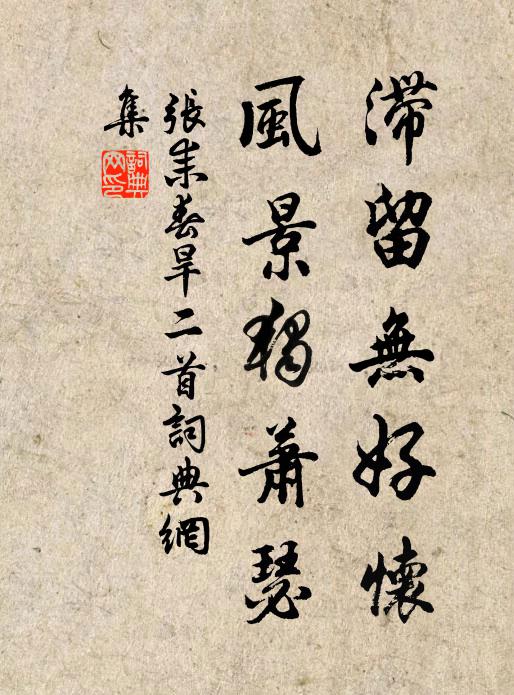 滯留無好懷
風景獨蕭瑟
張耒春旱二首詞典網
集
詞典網印